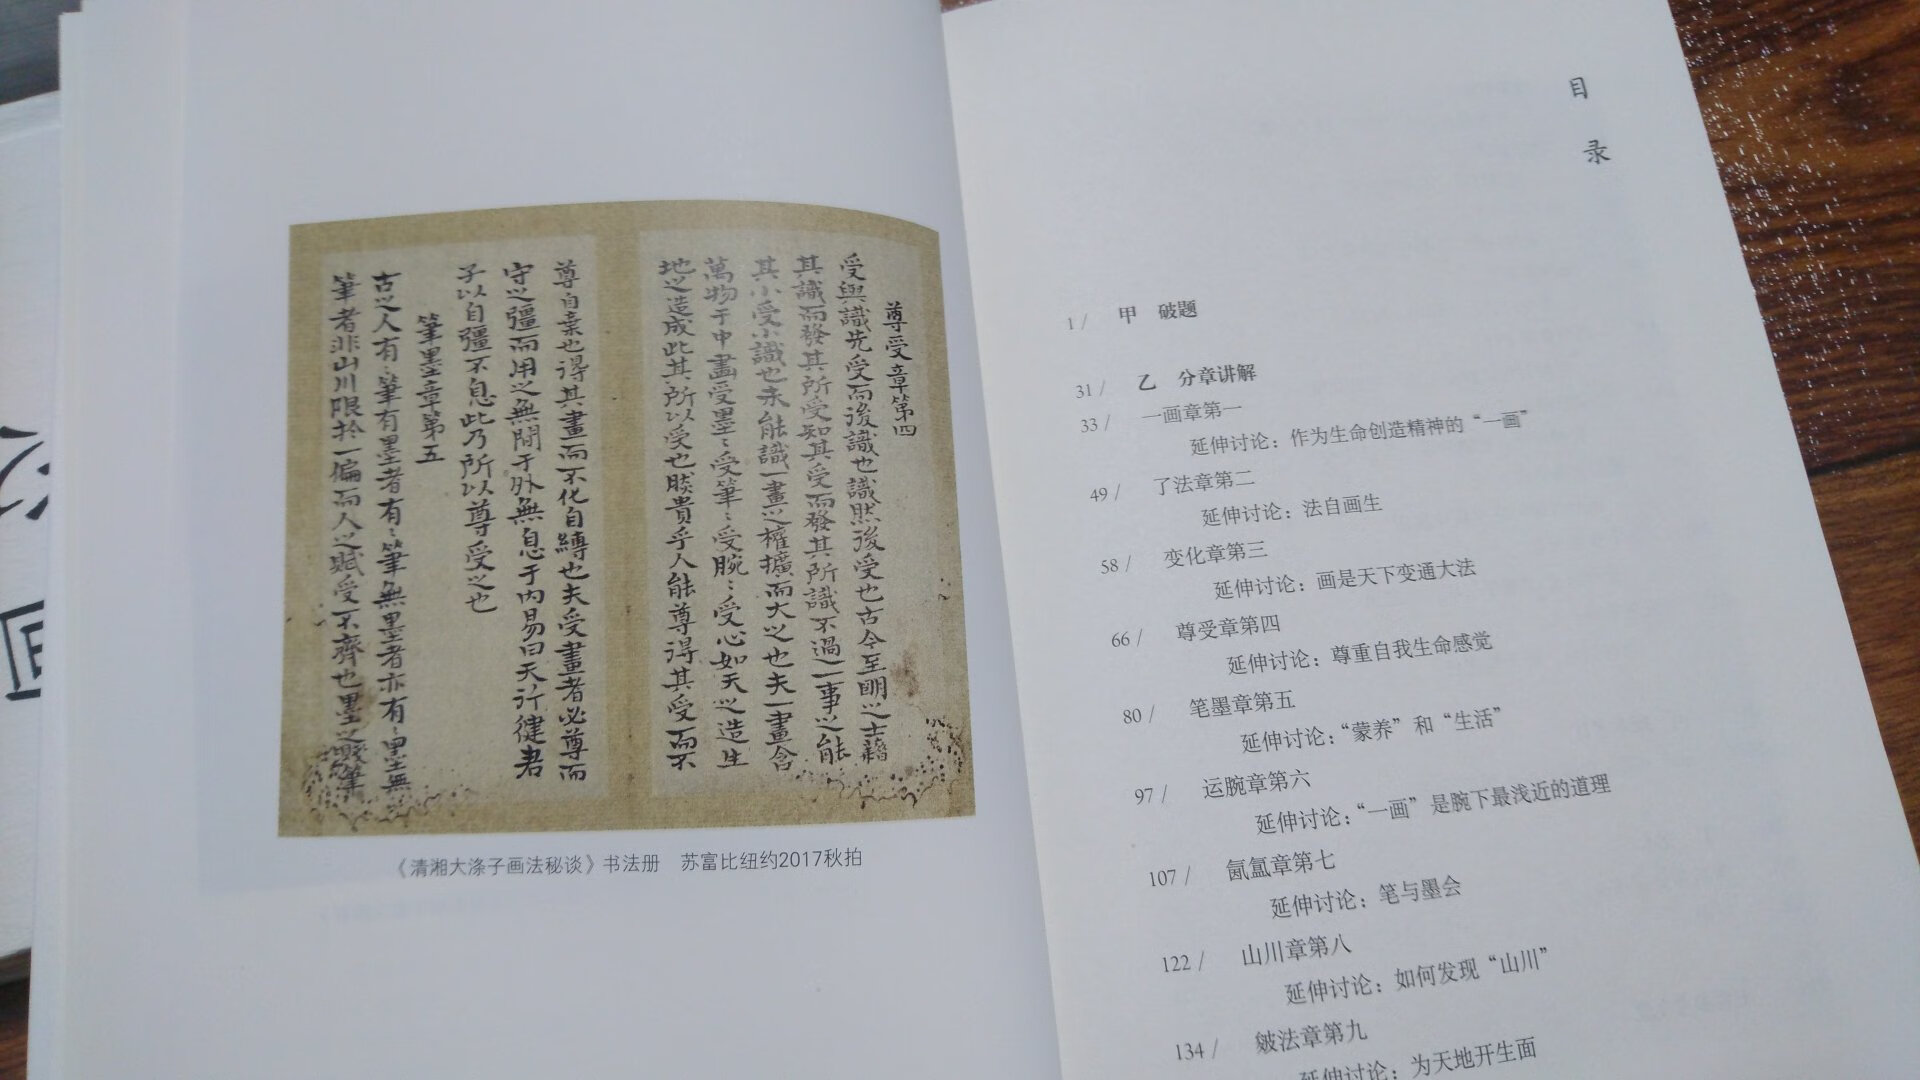 尊受章第四
受與識先受而後識也識然後受也古今至明之士藉
其識而發其所受知其受而發其所識不過一事之能
其小受小識也未能識一畫之權擴而大之也夫一畫含
萬物于中畫受墨〻受筆〻受腕〻受心如天之造生
地之造成此其所以受也然貴乎人能尊得其受而不
尊自棄也得其畫而不化自縛也夫受畫者必尊而
守之彊而用之無間于外無息于内易曰天行健君
子以自彊不息此乃所以尊受之也
筆墨章第五
古之人有〻筆有墨者有〻筆無墨者亦有〻墨無
筆者非山川限於一偏而人之賦受不齊也墨之濺筆
《清湘大涤子画法秘谈》书法册 苏富比纽约2017秋拍
目录
1 / 甲 破题
31 / 乙 分章讲解
33 / 一画章第一
延伸讨论：作为生命创造精神的“一画”
49 / 了法章第二
延伸讨论：法自画生
58 / 变化章第三
延伸讨论：画是天下变通大法
66 / 尊受章第四
延伸讨论：尊重自我生命感觉
80 / 笔墨章第五
延伸讨论：“蒙养”和“生活”
97 / 运腕章第六
延伸讨论：“一画”是腕下最浅近的道理
107 / 氤氲章第七
延伸讨论：笔与墨会
122 / 山川章第八
延伸讨论：如何发现“山川”
134 / 皴法章第九
延伸讨论：为天地开生面